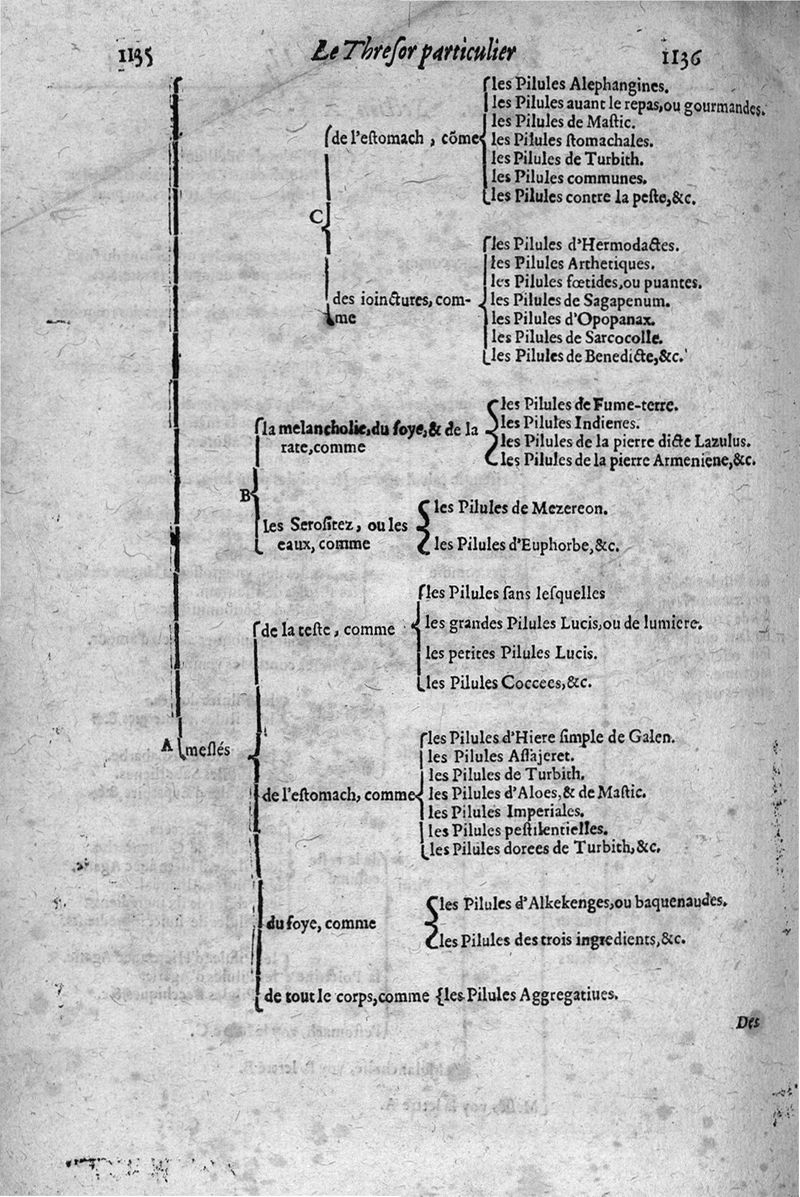 1135 Le Threſor particulier 1136
les Pilules Alephangines.
les Pilules auant le repas, ou gourmandes.
les Pilules de Maſtic.
de l'eſtomach, cõme les Pilules ſtomachales.
les Pilules de Turbith.
les Pilules communes.
les Pilules contre la peſte, &c.
C
les Pilules d'Hermodactes.
les Pilules Arthetiques.
les Pilules fœtides, ou puantes.
des ioinctures, com- les Pilules de Sagapenum.
me les Pilules d'Opopanax.
les Pilules de Sarcocolle.
les Pilules de Benedicte, &c.
les Pilules de Fume-terre.
la melancholie, du foye, & de la les Pilules Indienes.
rate, comme les Pilules de la pierre dicte Lazulus.
les Pilules de la pierre Armeniene, &c.
B
les Pilules de Mezereon.
les Seroſitez, ou les
eaux, comme les Pilules d'Euphorbe, &c.
les Pilules ſans leſquelles
de la teſte, comme les grandes Pilules Lucis, ou de lumiere.
les petites Pilules Lucis.
les Pilules Coccees, &c.
A meſlés
les Pilules d'Hiere ſimple de Galen.
les Pilules Aſſajeret.
les Pilules de Turbith.
de l'eſtomach, comme les Pilules d'Aloes, & de Maſtic.
les Pilules Imperiales.
les Pilules peſtilentielles.
les Pilules dorees de Turbith, &c.
les Pilules d'Alkekenges, ou baquenaudes.
du foye, comme
les Pilules des trois ingredients, &c.
de tout le corps, comme {les Pilules Aggregatiues.
Des